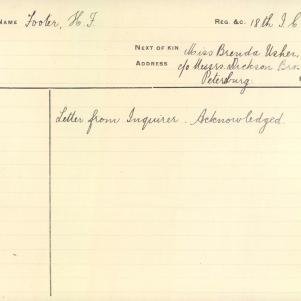 NAME Footer, H. F. REG. &C. 18th I. C
NEXT OF KIN Miss Brenda Usher,
ADDRESS c/o Messrs. Dickson Bro.
Petersburg
Letter from Inquirer. Acknowledged.